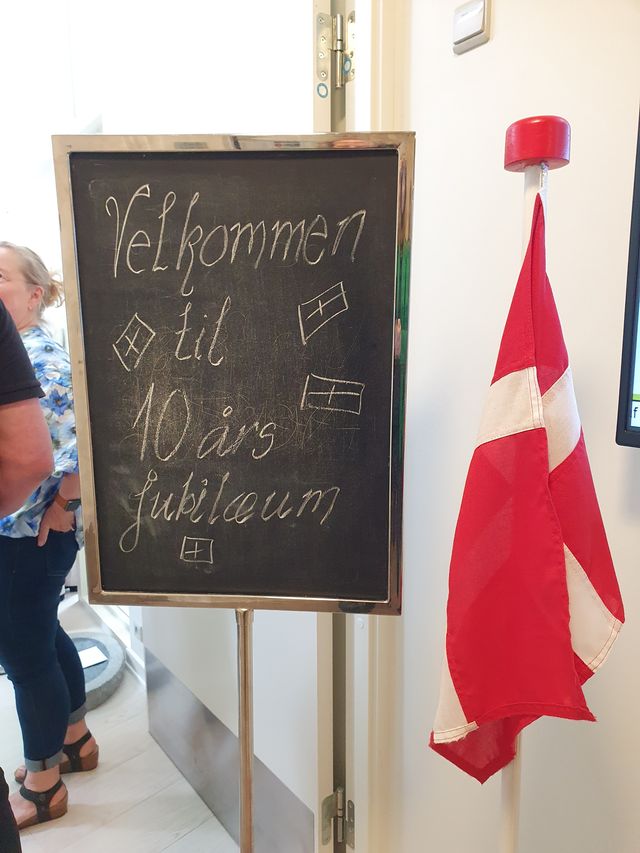 Velkommen
til
10 års
jubilæum